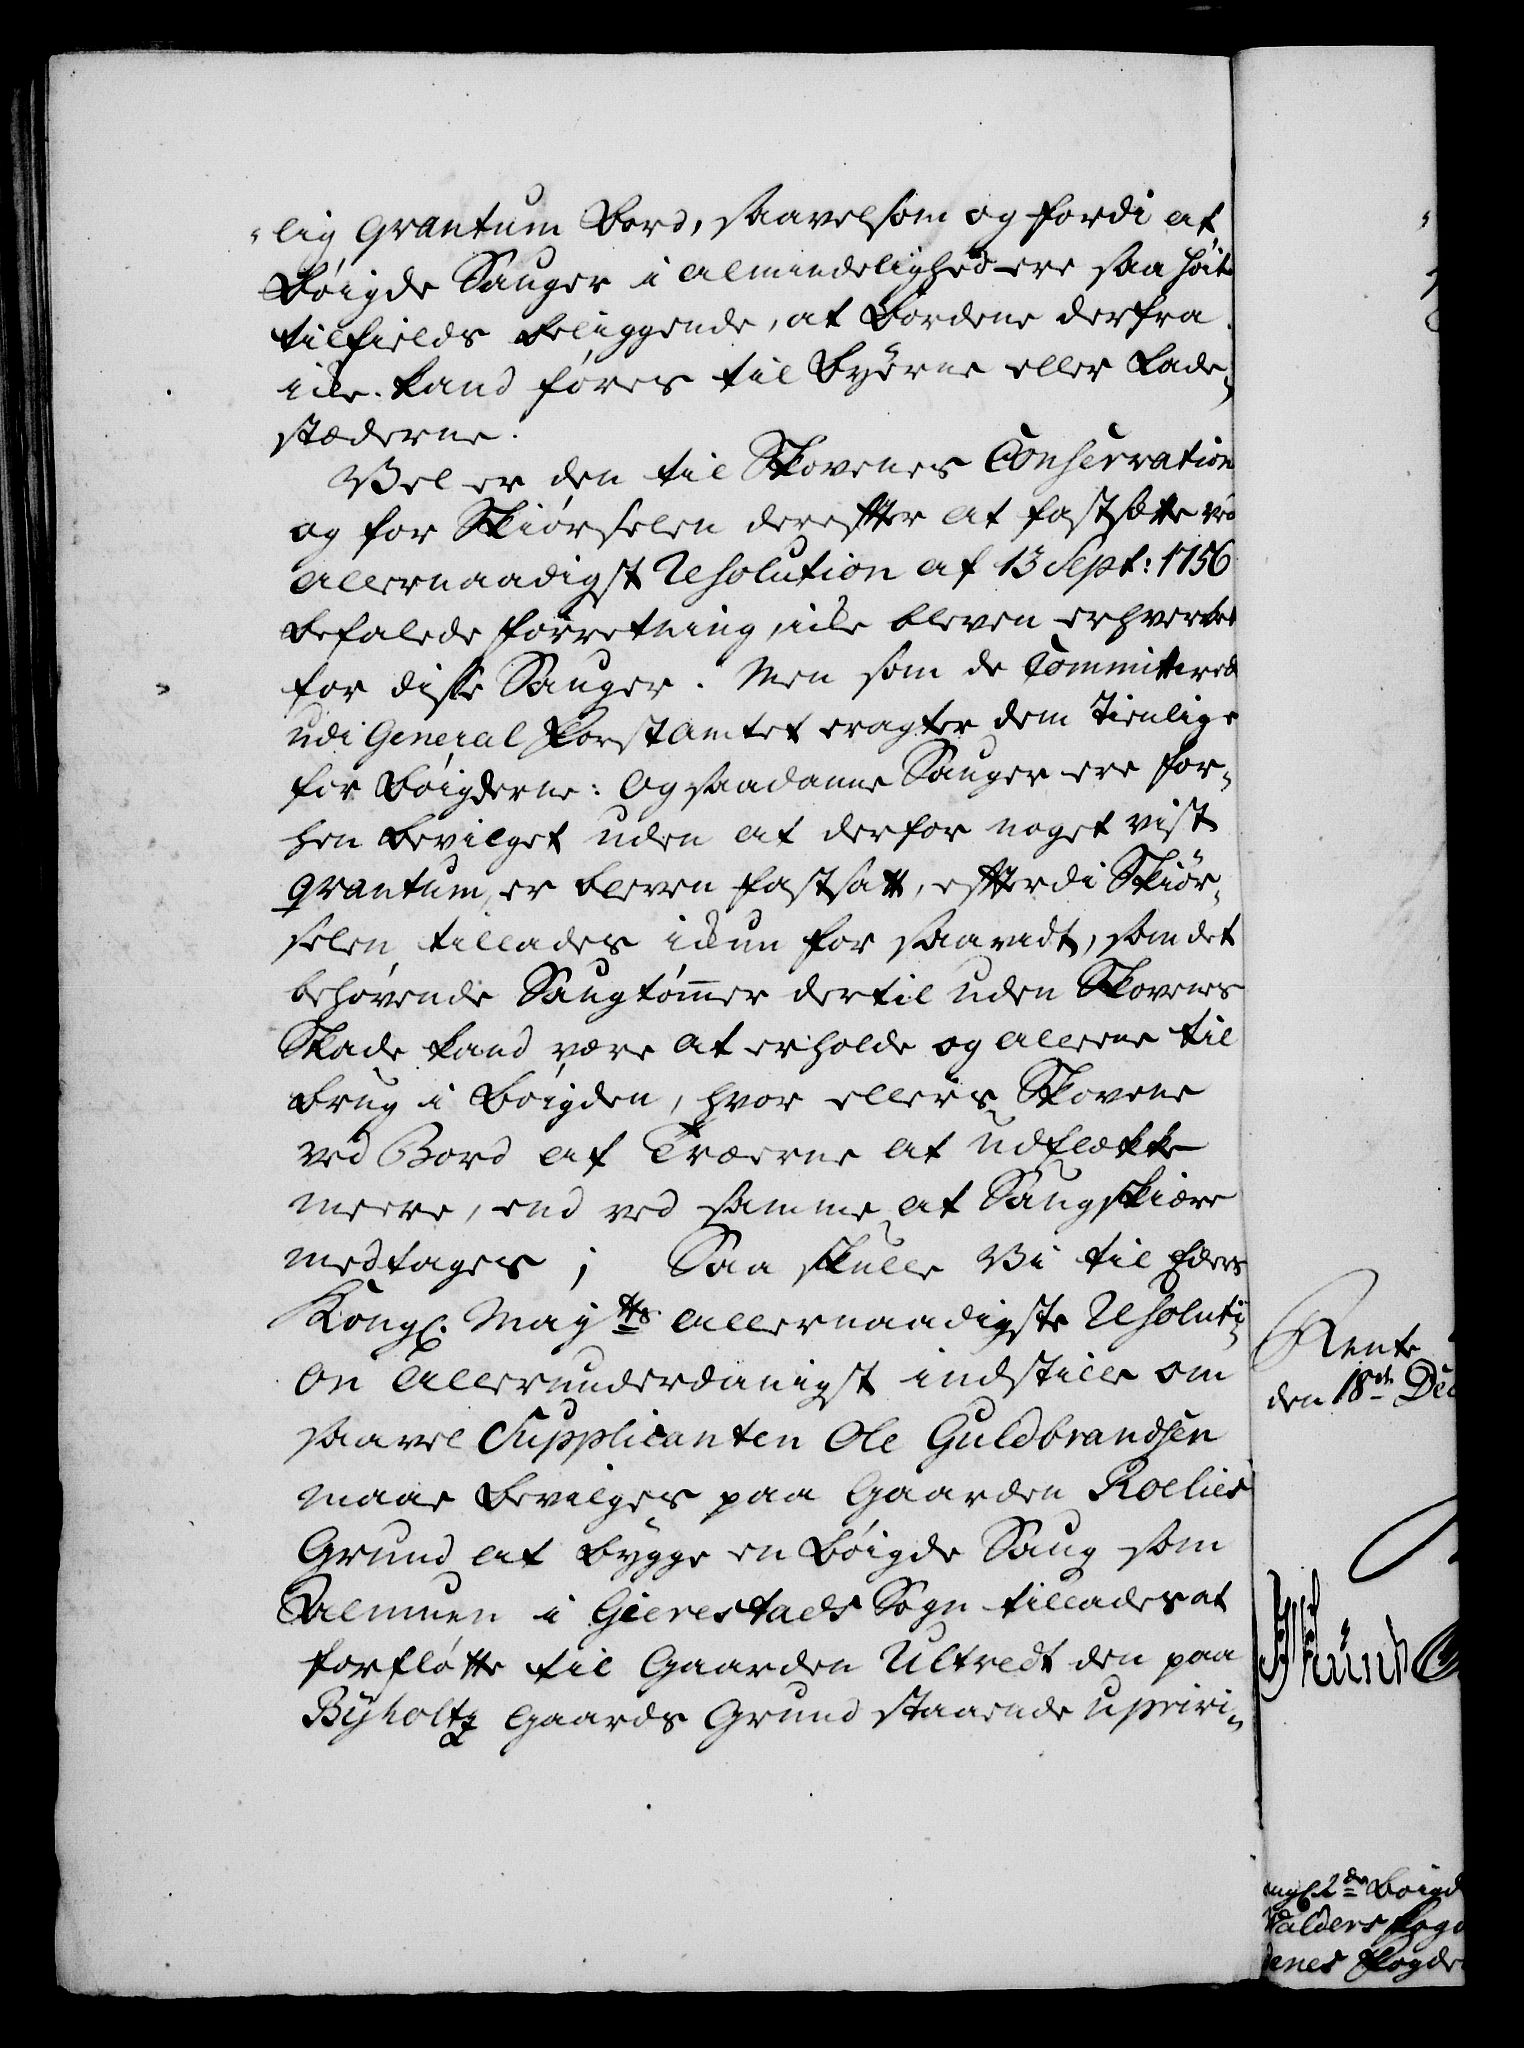 -lig Qvantum Bord, saavelsom og fordi at
Böigde Sauger i almindelighed ere saa höit
tilfields beliggende, at Bordene derfra
icke kand föres til Byerne eller Lade-
stæderne.
Vel er den til Skovenes Conservation
og for Skiörselen derefter at fastsette ved
allernaadigst Resolution af 13 Sept: 1756
befalede Forretning, icke bleven erhvervet
for disse Sauger. Men som de Committerede
udi General Forstamtet eragter dem tienlige
for Böigderne: Og saadanne Sauger ere for-
hen bevilget uden at derfor noget vist
Qvantum er bleven fastsatt, efterdi Skiör-
selen tillades ickun for saavidt, som det
behövende Saugtömmer dertil uden Skovenes
Skade kand være at erholde og allene til
brug i Böigden, hvor ellers Skovene
ved Bord af Træerne at udflække
meere, end ved samme at Saugskiære
medtages; Saa skulle Vi til Eders
Kongl. May.tts allernaadigste Resoluti-
on allerunderdanigst indstille om
saavel Supplicanten Ole Guldbrandsen
maae bevilges paa Gaarden Roelies
Grund at bygge en Böigde Saug som
Almuen i Gierestads Sogn tillades at
forflötte til Gaarden Ultvedt den paa
Byholtz Gaards Grund staaende uprivi-
Rente
den 18de Dec
2de Böigd
Valders Fogd
Fogde